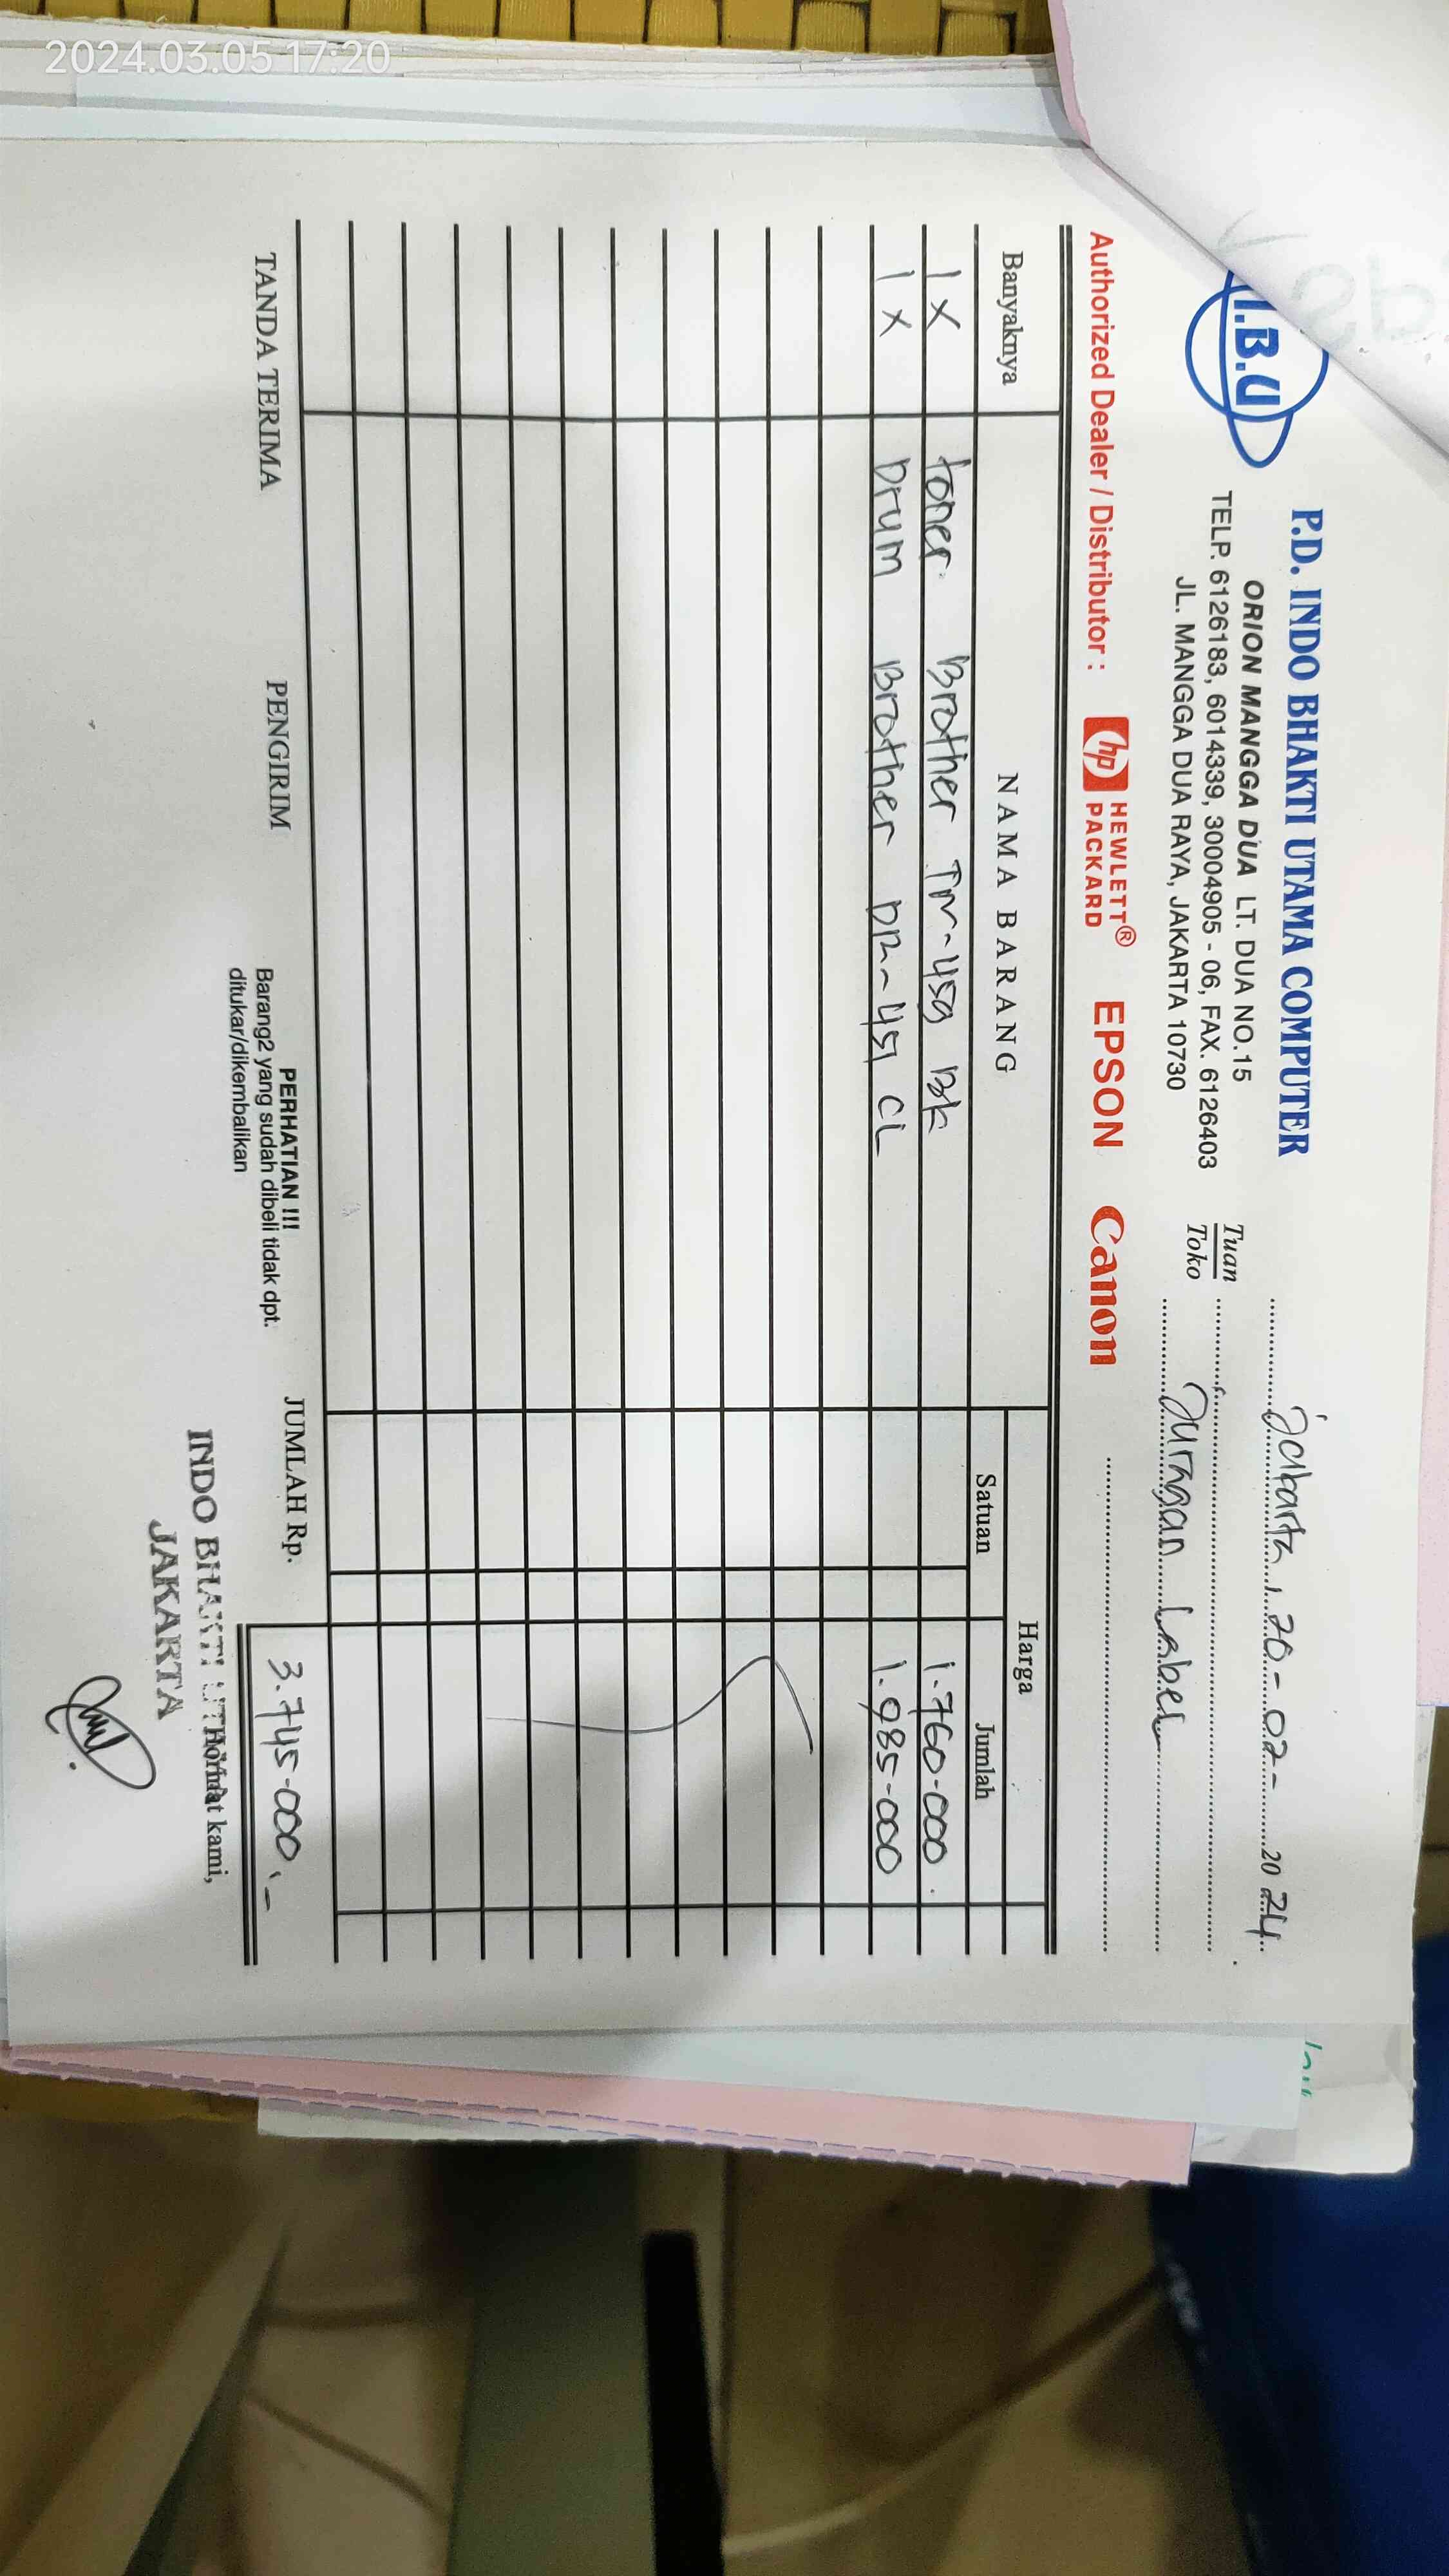 2024.03.05 17:20
I.B.U
P.D. INDO BHAKTI UTAMA COMPUTER
ORION MANGGA DUA LT. DUA NO.15
TELP. 6126183, 6014339, 30004905 - 06, FAX. 6126403
JL. MANGGA DUA RAYA, JAKARTA 10730
Jakarta, 20-02-2024
Tuan
Toko
Juragan Label
Authorized Dealer / Distributor : hp HEWLETT® PACKARD EPSON Canon
Banyaknya NAMA BARANG Harga
Satuan Jumlah
1 x toner Brother TN-459 BK 1.760.000
1 x Drum Brother DR-451 CL 1.985.000
TANDA TERIMA PENGIRIM
PERHATIAN !!!
Barang2 yang sudah dibeli tidak dpt.
ditukar/dikembalikan
JUMLAH Rp. 3.745.000,-
Hormat kami,
INDO BHAKTI UTAMA
JAKARTA